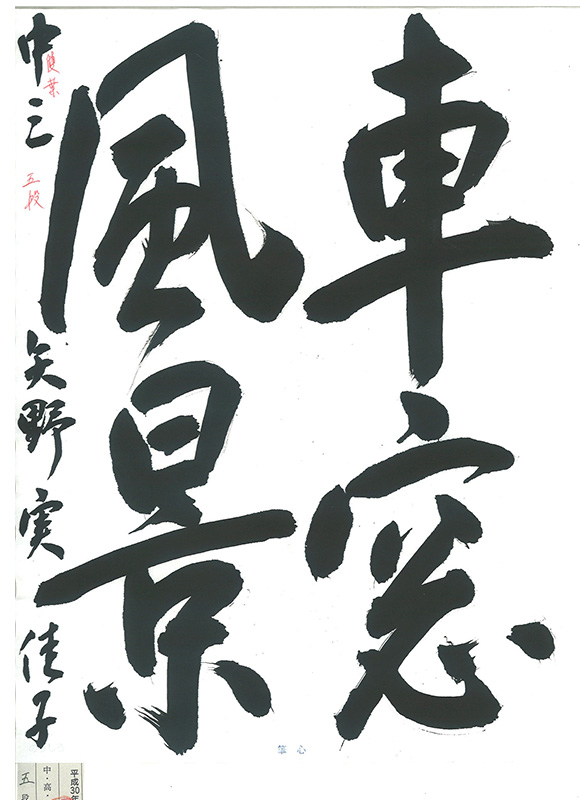 車窓
風景
中三 矢野実佳子
五段
心筆
平成30年
中・高・
五段